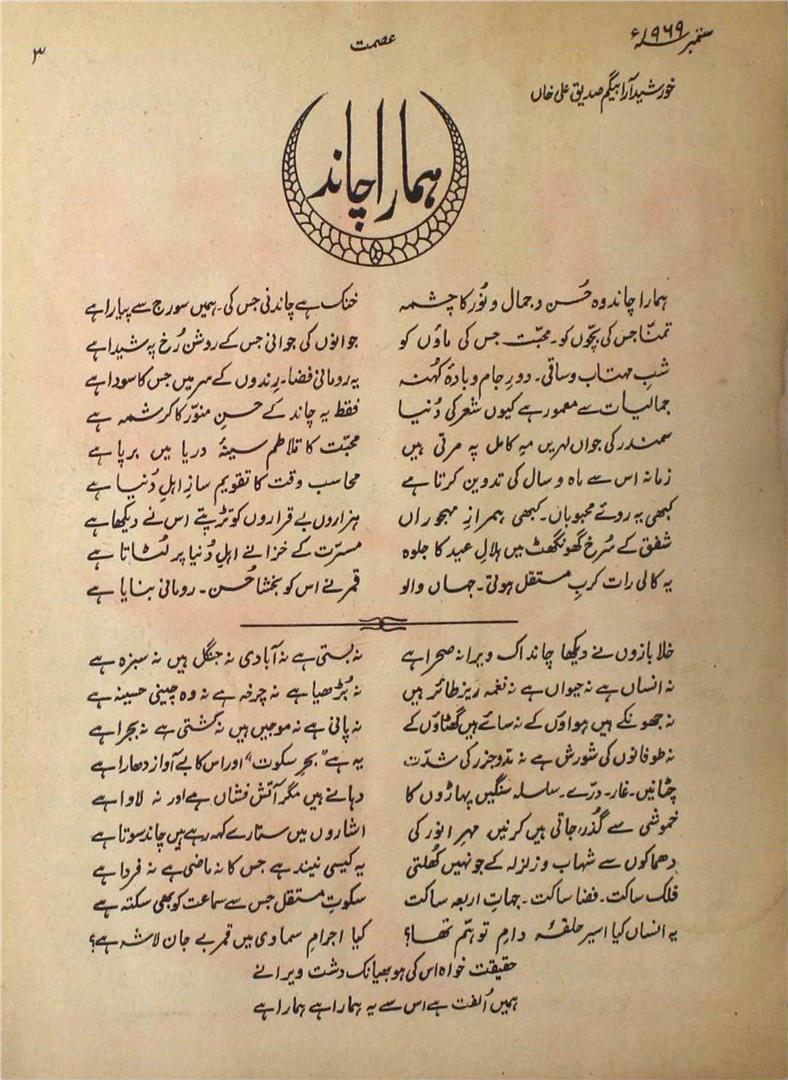 ستمبر ۱۹۶۹ء
عصمت
۳
خورشید آرا بیگم صدیق علی خاں
ہمارا چاند
ہمارا چاند وہ حُسن و جمال و نُور کا چشمہ خنک ہے چاندنی جس کی۔ ہمیں سورج سے پیارا ہے
تمنّا جس کی بچّوں کو۔ محبّت جس کی ماؤں کو جوانوں کی جوانی جس کے روشن رُخ پہ شیدا ہے
شبِ مہتاب و ساقی۔ دورِ جام و بادۂ کُہنہ یہ رومانی فضا۔ رِندوں کے سر میں جس کا سودا ہے
جمالیات سے معمور ہے کیوں شعر کی دُنیا فقط یہ چاند کے حسنِ منوّر کا کرشمہ ہے
سمندر کی جواں لہریں مہِ کامل پہ مرتی ہیں محبّت کا تلاطم سینۂ دریا میں برپا ہے
زمانہ اس سے ماہ و سال کی تدوین کرتا ہے محاسب وقت کا تقویم سازِ اہلِ دُنیا ہے
کبھی یہ روئے محبوباں۔ کبھی ہمرازِ مہجوراں ہزاروں بے قراروں کو تڑپتے اس نے دیکھا ہے
شفق کے سُرخ گھونگھٹ میں ہلالِ عید کا جلوہ مسرّت کے خزانے اہلِ دُنیا پر لُٹاتا ہے
یہ کالی رات کربِ مستقل ہوتی۔ جہاں والو قمر نے اس کو بخشا حُسن۔ رومانی بنایا ہے
خلا بازوں نے دیکھا چاند اک ویرانہ صحرا ہے نہ بستی ہے نہ آبادی نہ جنگل ہیں نہ سبزہ ہے
نہ انساں ہے نہ حیواں ہے نہ نغمہ ریز طائر ہیں نہ بُڑھیا ہے نہ چرخہ ہے نہ وہ چینی حسینہ ہے
نہ جھونکے ہیں ہواؤں کے نہ سائے ہیں گھٹاؤں کے نہ پانی ہے نہ موجیں ہیں نہ کشتی ہے نہ بجرا ہے
نہ طوفانوں کی شورش ہے نہ مدّوجزر کی شدّت یہ ہے "بحرِ سکوت" اور اس کا بے آواز دھارا ہے
چٹانیں۔ غار۔ درّے۔ سلسلہ سنگیں پہاڑوں کا دہانے ہیں مگر آتش فشاں ہے اور نہ لاوا ہے
خموشی سے گذر جاتی ہیں کرنیں مہرِ انور کی اشاروں میں ستارے کہہ رہے ہیں چاند سوتا ہے
دھماکوں سے شہاب و زلزلہ کے جو نہیں کُھلتی یہ کیسی نیند ہے جس کا نہ ماضی ہے نہ فردا ہے
فلک ساکت۔ فضا ساکت۔ جہاتِ اربعہ ساکت سکوتِ مستقل جس سے سماعت کو بھی سکتہ ہے
یہ انساں کیا اسیرِ حلقۂ دامِ توہّم تھا؟ کیا اجرامِ سماوی میں قمر بے جان لاشہ ہے؟
حقیقت خواہ اس کی ہو بھیانک دشت ویرانے
ہمیں اُلفت ہے اس سے یہ ہمارا ہے ہمارا ہے